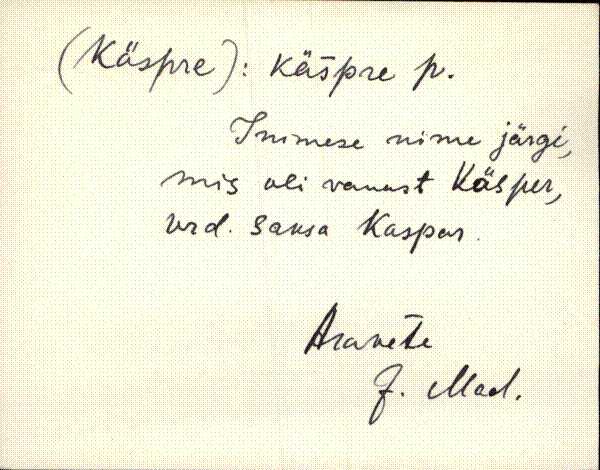 (Käspre): käšpre p.
Inimese nime järgi,
mis oli vanast Käsper,
vrd. saksa Kaspar.
Aravete
J. Mad.